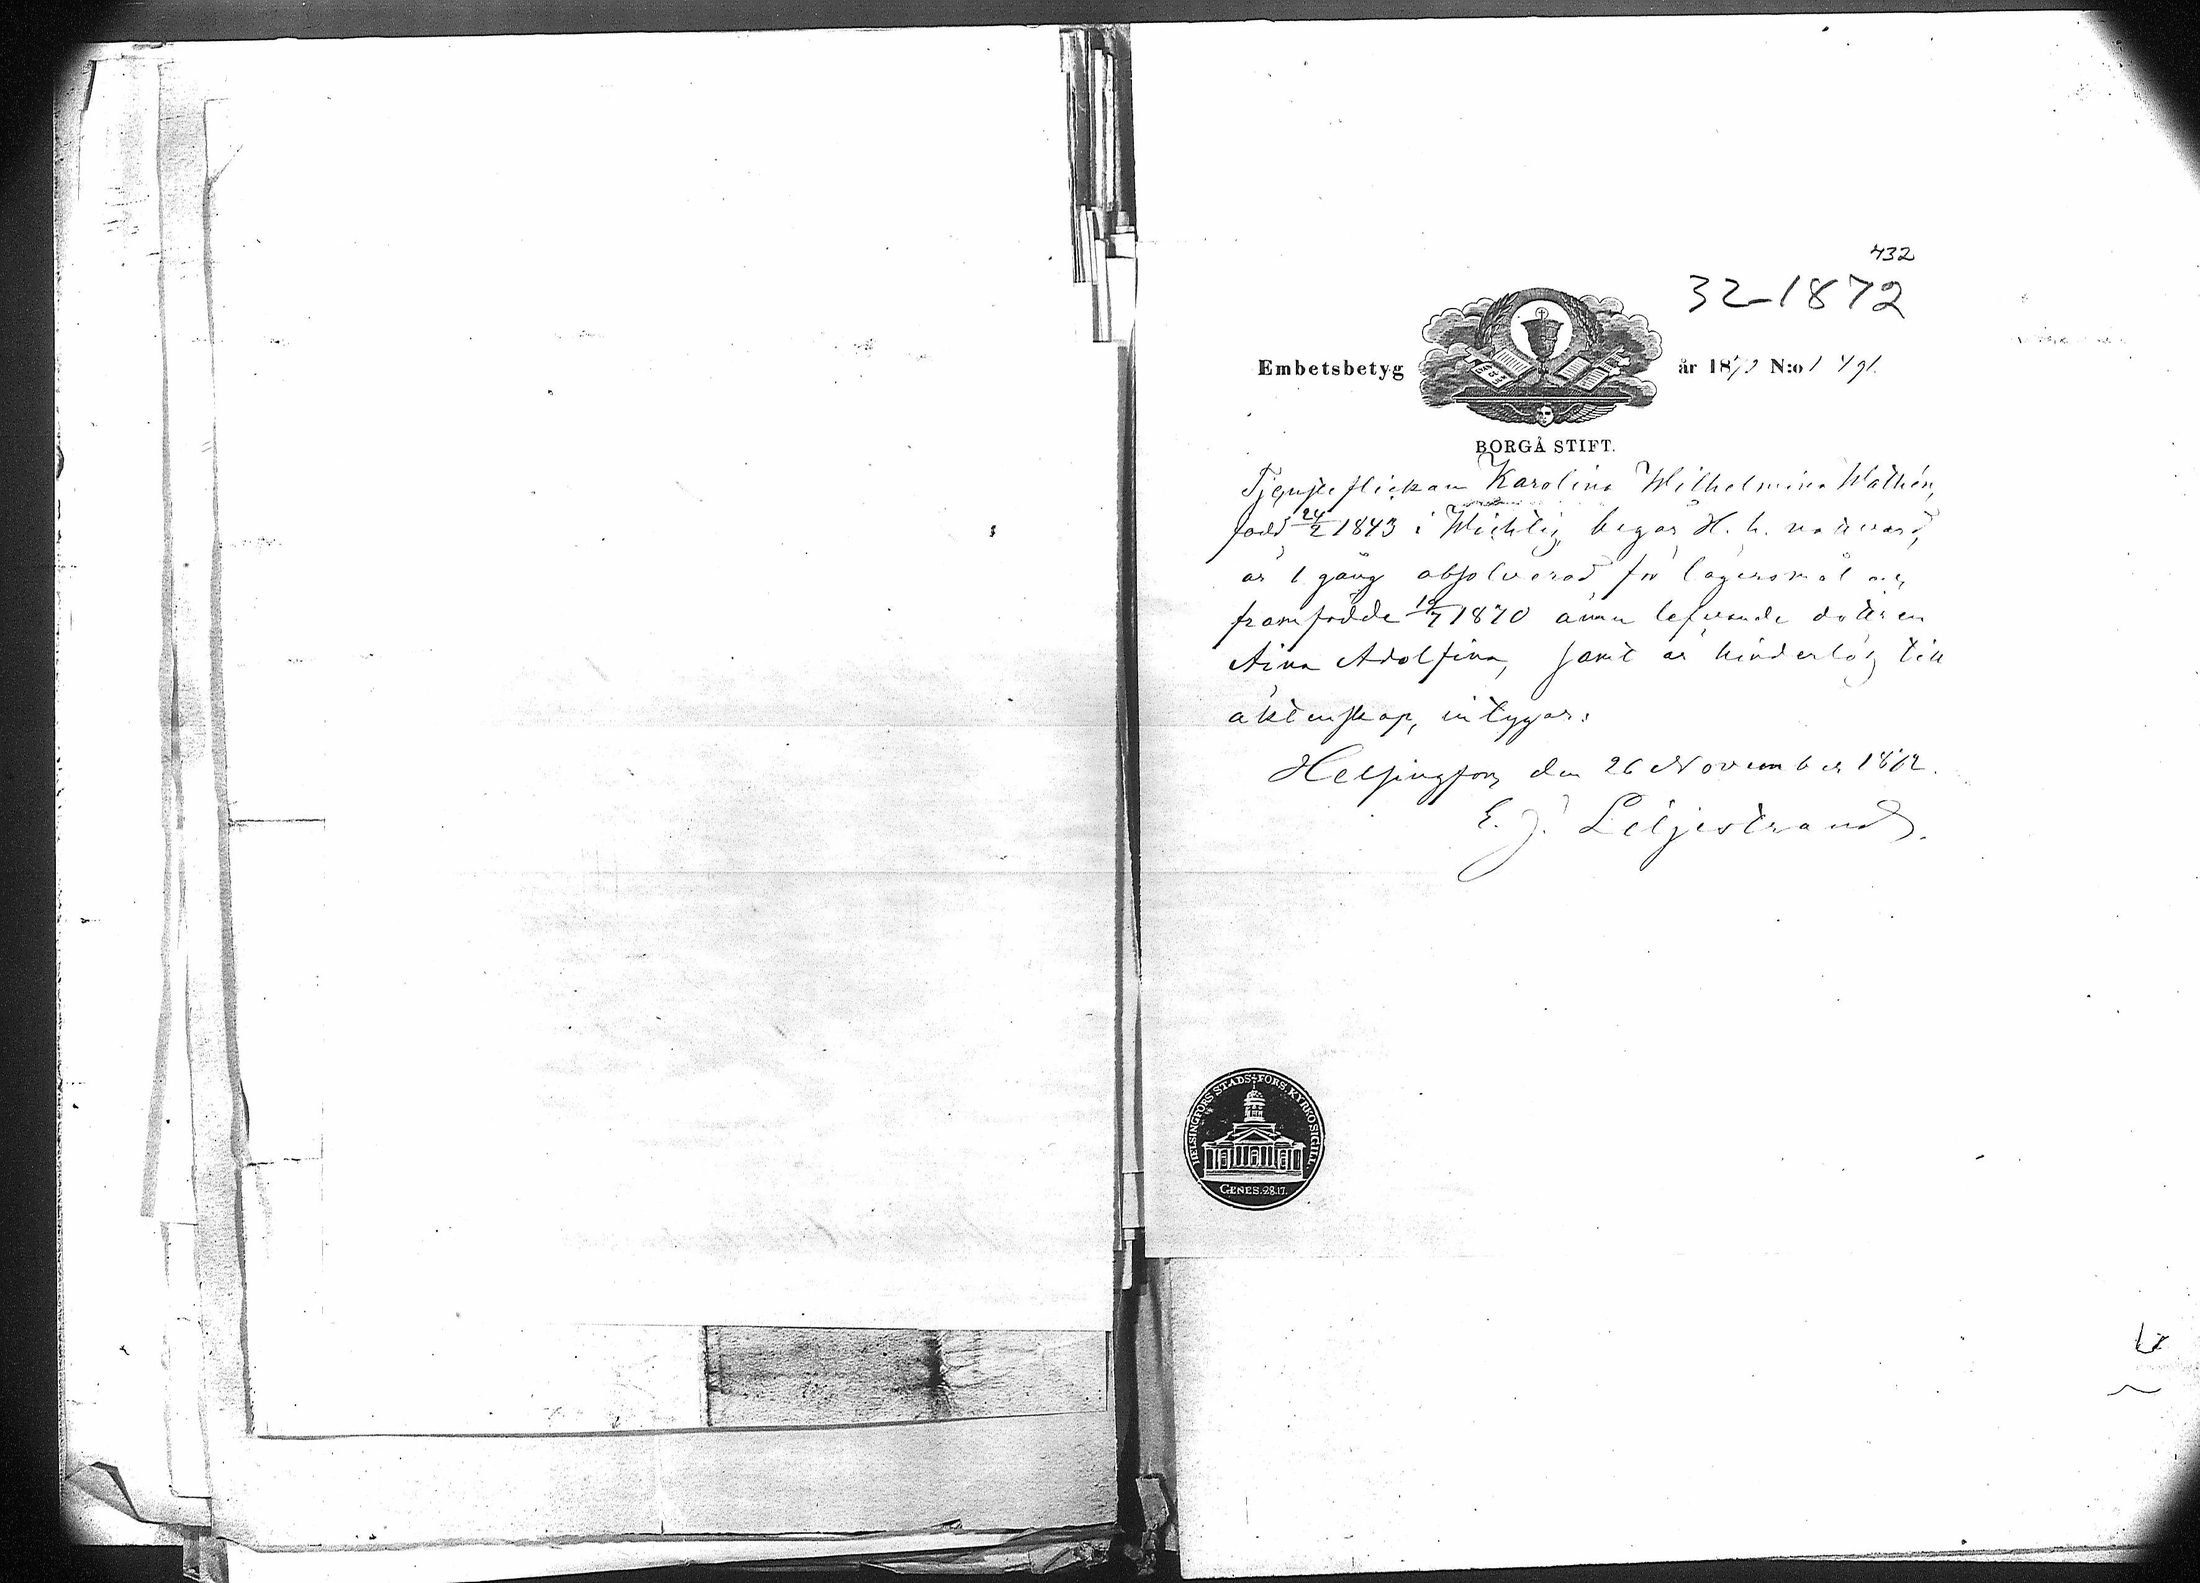 432
32-1872
Embetsbetyg år 1872 N:o
BORGÅ STIFT.
Tjensteflickan Karolina Wilhelmina Wathén,
född 24/2 1843 i Wichtis, begår H. h. nattvard,
är 1 gång absolverad för lägersmål och
framfödde 19/7 1870 ännu lefvande dottren
Aina Adolfina, samt är hinderlös till
äktenskap, intygar:
Helsingfors den 26 November 1872.
E. J. Liljestrand.
HELSINGFORS STADS-FÖRS. KYRKOSIGILL.
GENES. 28.17.